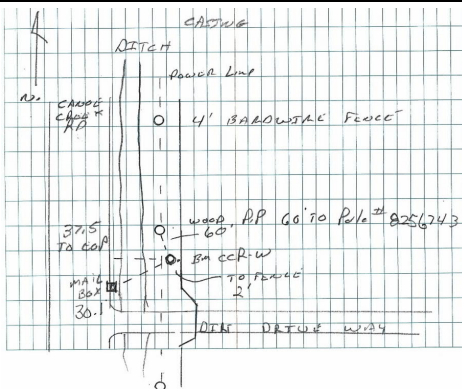 DITCH
POWER LINE
N.
CANOE
CREEK
RD
4' BARDWIRE FENCE
WOOD P.P 60' TO Pole # 8256743
60'
37.5
TO EOP
BM CCR-W
TO FENCE
2'
MAIL
BOX
30.1
DIRT DRIVE WAY